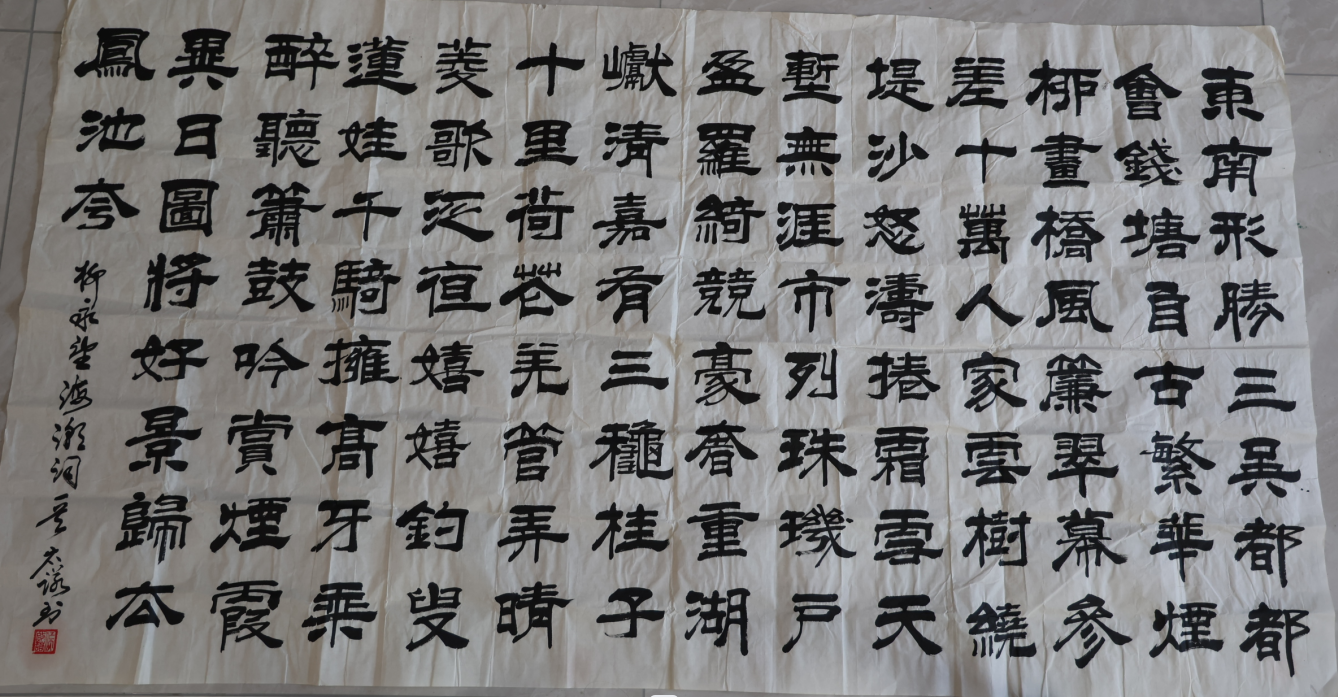 東南形勝三吳都都
會錢塘自古繁華煙
柳畫橋風簾翠幕參
差十萬人家雲樹繞
堤沙怒濤捲霜雪天
塹無涯市列珠璣戶
盈羅綺競豪奢重湖
巘清嘉有三穐桂子
十里荷花羌管弄晴
菱歌泛夜嬉嬉釣叟
蓮娃千騎擁高牙乘
醉聽簫鼓吟賞煙霞
異日圖將好景歸去
鳳池夸
柳永望海潮詞